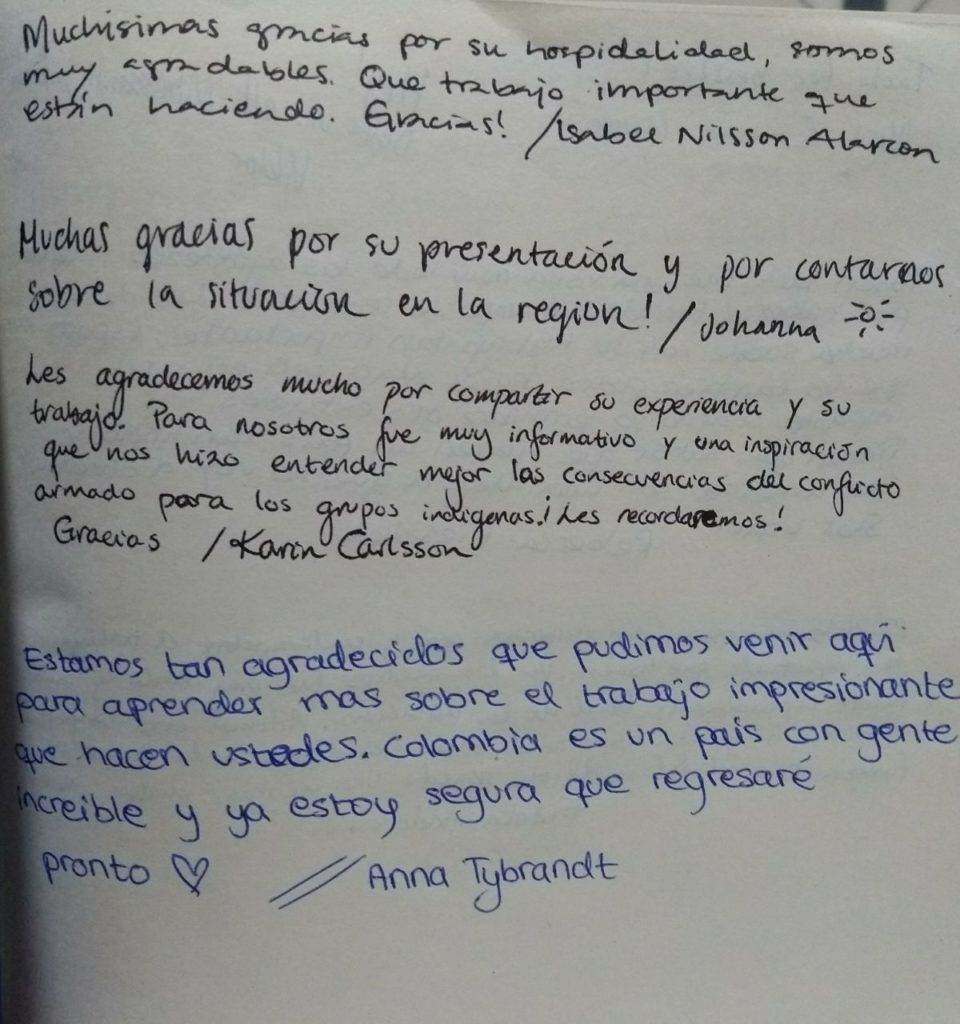 Muchisimas gracias por su hospidalidad, somos
muy agradables. Que trabajo importante que
están haciendo. Gracias! /Isabel Nilsson Alarcon
Muchas gracias por su presentación y por contarnos
sobre la situación en la region! /Johanna
Les agradecemos mucho por compartir su experiencia y su
trabajo. Para nosotros fue muy informativo y una inspiración
que nos hizo entender mejor las consecuencias del conflicto
armado para los grupos indigenas.¡Les recordaremos!
Gracias /Karin Carlsson
Estamos tan agradecidos que pudimos venir aquí
para aprender mas sobre el trabajo impresionante
que hacen ustedes. Colombia es un país con gente
increible y ya estoy segura que regresaré
pronto ♡ // Anna Tybrandt